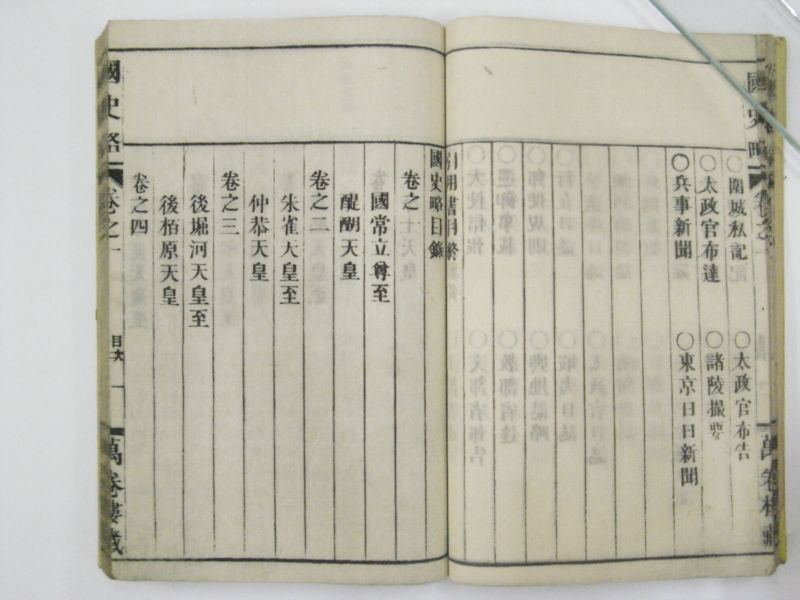 國史略
卷之一
萬卷樓藏
○圍城私記
○太政官布告
○太政官布達
○諸陵撮要
○兵事新聞
○東京日日新聞
引用書目終
國史略目錄
卷之一
國常立尊至
醍醐天皇
卷之二
朱雀天皇至
仲恭天皇
卷之三
後堀河天皇至
後栢原天皇
卷之四
國史略
卷之一
目次
一
萬卷樓藏